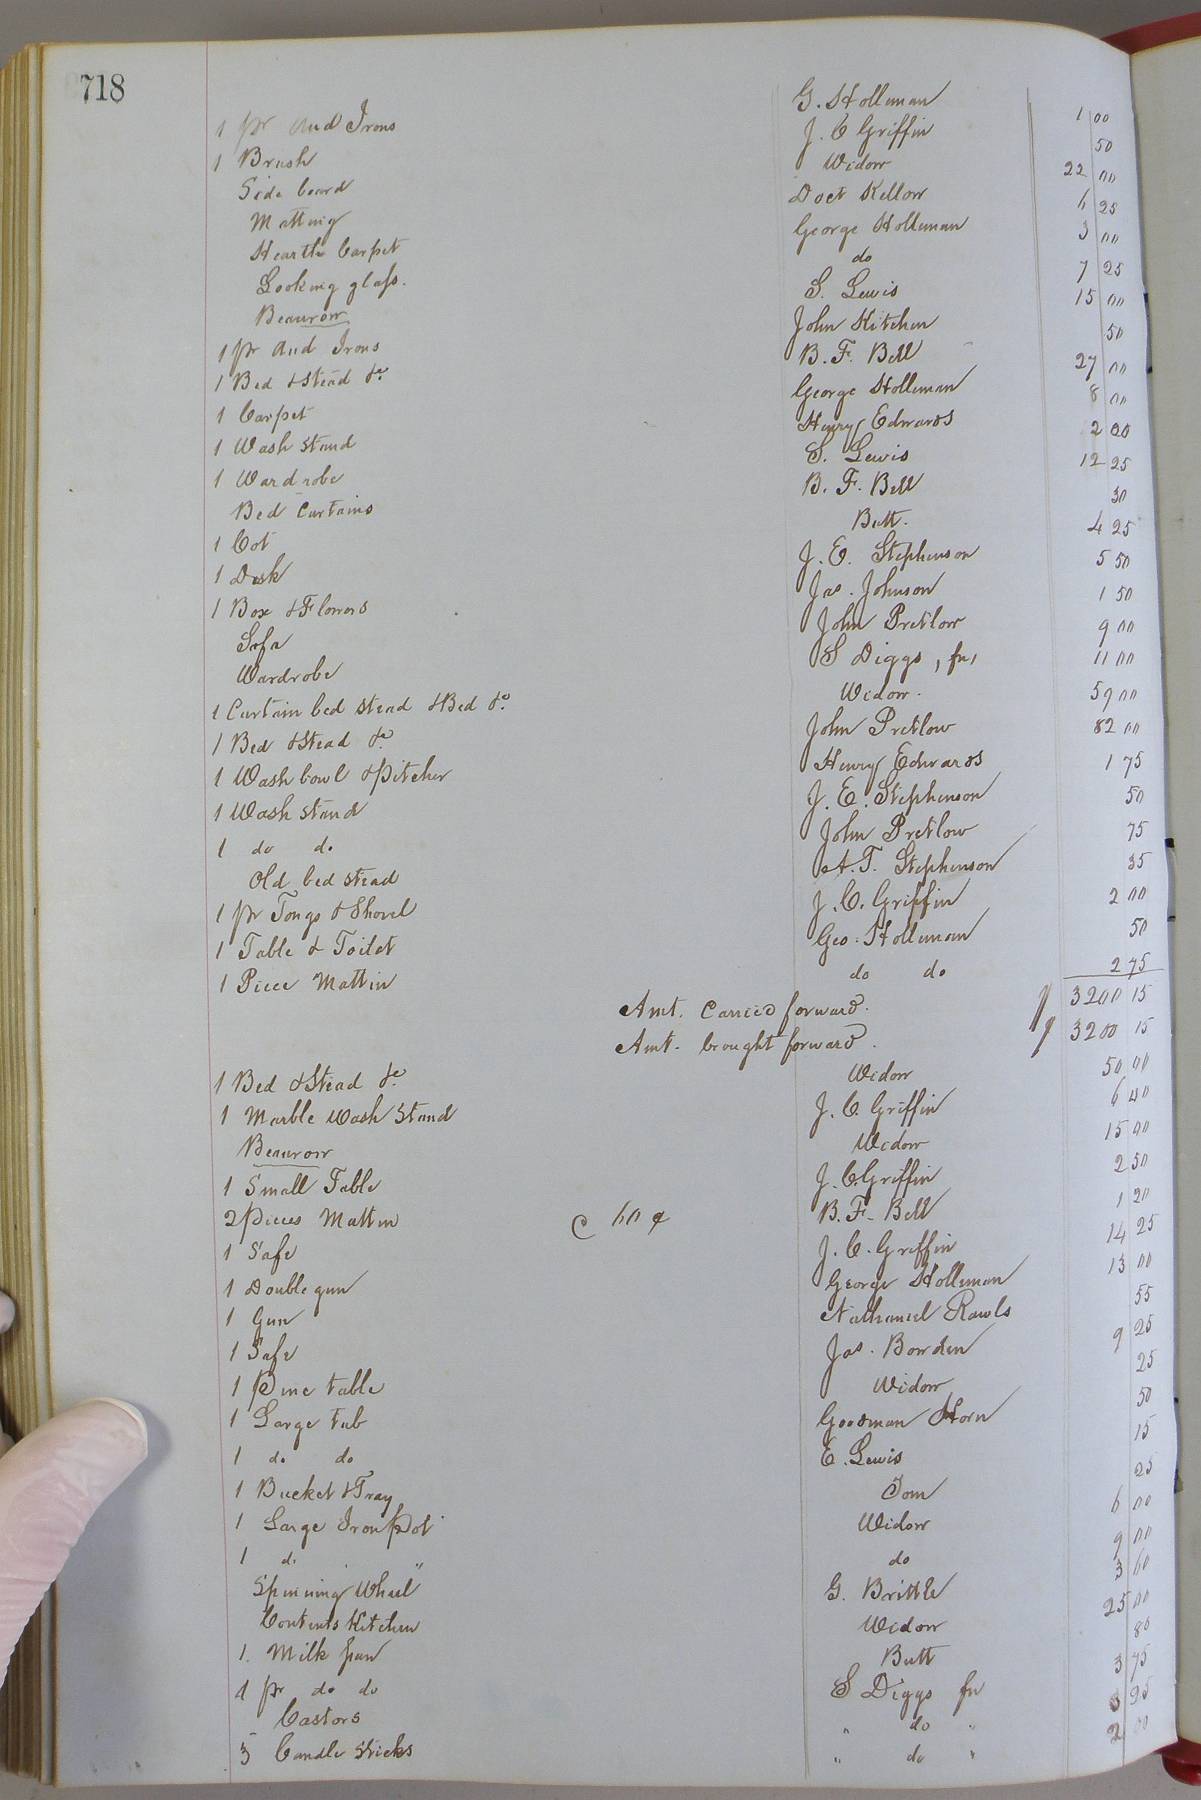 718
1 pr And Irons G. Holleman 1 00
1 Brush J. C Griffin 50
Side board Widow 22 00
Matting Doct Kellow 6 25
Hearth Carpet George Holleman 3 00
Looking glass. do 7 25
Beaurow S. Lewis 15 00
1 pr And Irons John Kitchen 50
1 Bed & Stead &c. B. F. Bell 27 00
1 Carpet George Holleman 8 00
1 Wash stand Henry Edwards 2 00
1 Wardrobe S. Lewis 12 25
Bed Curtains B. F. Bell 30
1 Cot Butt. 4 25
1 Desk J. E. Stephenson 5 50
1 Box & Flowers Jas. Johnson 1 50
Sofa John Pretlow 9 00
Wardrobe S Diggs, fn, 11 00
1 Curtain bed stead & Bed &c. Widow. 59 00
1 Bed & Stead &c. John Pretlow 82 00
1 Wash bowl & pitcher Henry Edwards 1 75
1 Wash stand J. E. Stephenson 50
1 do do John Pretlow 75
Old bed stead A. T. Stephenson 35
1 pr Tongs & Shovel J. C. Griffin 2 00
1 Table & Toilet Geo. Holleman 50
1 Piece Mattin do do 2 75
Amt. Carried forward. $ 3200 15
Amt. brought forward. $ 3200 15
1 Bed & Stead &c. Widow 50 00
1 Marble Wash Stand J. C. Griffin 6 40
Beaurow Widow 15 00
1 Small Table J. C. Griffin 2 50
2 pieces Mattin @ 60 ¢ B. F. Bell 1 20
1 Safe J. C. Griffin 14 25
1 Double gun George Holleman 13 00
1 Gun Nathaniel Rawls 55
1 Safe Jas. Bowden 9 25
1 Pine table Widow 25
1 Large tub Goodman Horn 50
1 do do E. Lewis 15
1 Bucket & Tray Tom 25
1 Large Iron Pot Widow 6 00
1 do " do 9 00
Spinning Wheel G. Brittle 3 60
Contents Kitchen Widow 25 00
1. Milk pan Butt 80
1 pr do do S Diggs fn 3 75
Castors " do " 3 95
3 Candle Sticks " do " 2 00